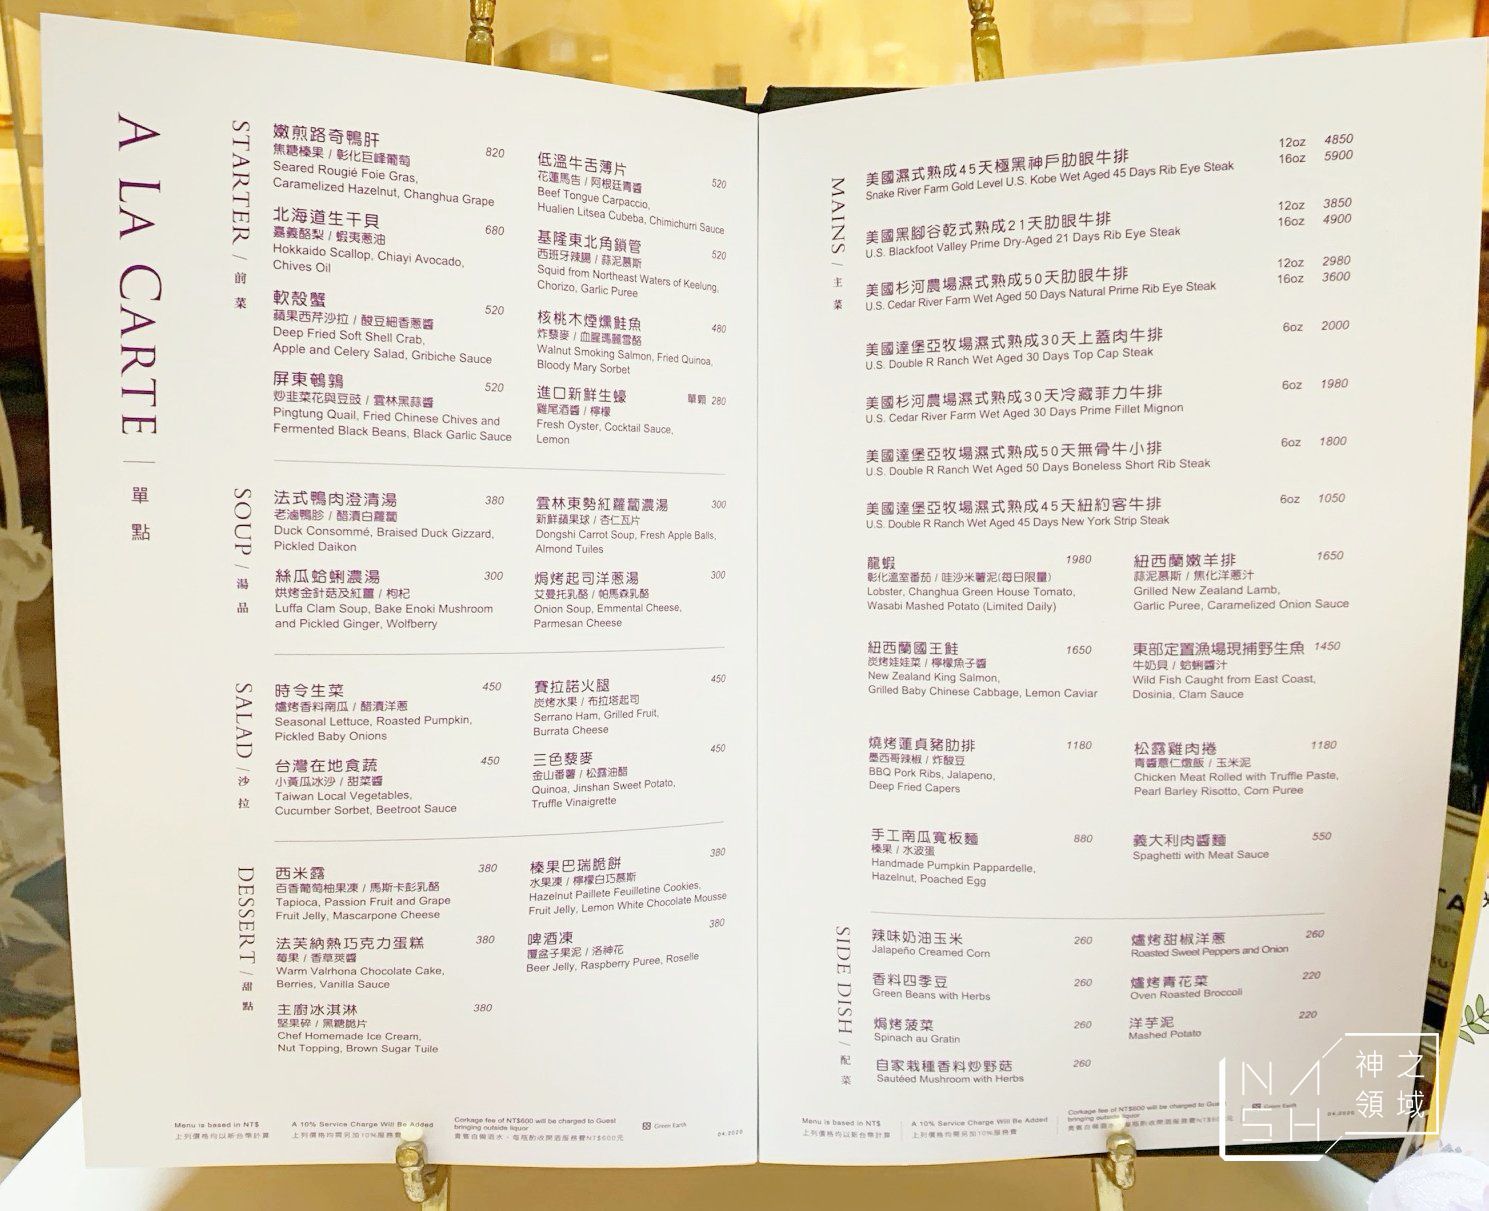 A LA CARTE | 單點
STARTER / 前菜
嫩煎路奇鴨肝 820
焦糖榛果 / 彰化巨峰葡萄
Seared Rougié Foie Gras,
Caramelized Hazelnut, Changhua Grape
北海道生干貝 680
嘉義酪梨 / 蝦夷蔥油
Hokkaido Scallop, Chiayi Avocado,
Chives Oil
軟殼蟹 520
蘋果西芹沙拉 / 酸豆細香蔥醬
Deep Fried Soft Shell Crab,
Apple and Celery Salad, Gribiche Sauce
屏東鵪鶉 520
炒韭菜花與豆豉 / 雲林黑蒜醬
Pingtung Quail, Fried Chinese Chives and
Fermented Black Beans, Black Garlic Sauce
低溫牛舌薄片 520
花蓮馬告 / 阿根廷青醬
Beef Tongue Carpaccio,
Hualien Litsea Cubeba, Chimichurri Sauce
基隆東北角鎖管 520
西班牙辣腸 / 蒜泥慕斯
Squid from Northeast Waters of Keelung,
Chorizo, Garlic Puree
核桃木煙燻鮭魚 480
炸藜麥 / 血腥瑪麗雪酪
Walnut Smoking Salmon, Fried Quinoa,
Bloody Mary Sorbet
進口新鮮生蠔 單顆 280
雞尾酒醬 / 檸檬
Fresh Oyster, Cocktail Sauce,
Lemon
SOUP / 湯品
法式鴨肉澄清湯 380
老滷鴨胗 / 醋漬白蘿蔔
Duck Consommé, Braised Duck Gizzard,
Pickled Daikon
絲瓜蛤蜊濃湯 300
烘烤金針菇及紅薑 / 枸杞
Luffa Clam Soup, Bake Enoki Mushroom
and Pickled Ginger, Wolfberry
雲林東勢紅蘿蔔濃湯 300
新鮮蘋果球 / 杏仁瓦片
Dongshi Carrot Soup, Fresh Apple Balls,
Almond Tuiles
焗烤起司洋蔥湯 300
艾曼托乳酪 / 帕馬森乳酪
Onion Soup, Emmental Cheese,
Parmesan Cheese
SALAD / 沙拉
時令生菜 450
爐烤香料南瓜 / 醋漬洋蔥
Seasonal Lettuce, Roasted Pumpkin,
Pickled Baby Onions
台灣在地食蔬 450
小黃瓜冰沙 / 甜菜醬
Taiwan Local Vegetables,
Cucumber Sorbet, Beetroot Sauce
賽拉諾火腿 450
炭烤水果 / 布拉塔起司
Serrano Ham, Grilled Fruit,
Burrata Cheese
三色藜麥 450
金山番薯 / 松露油醋
Quinoa, Jinshan Sweet Potato,
Truffle Vinaigrette
DESSERT / 甜點
西米露 380
百香葡萄柚果凍 / 馬斯卡彭乳酪
Tapioca, Passion Fruit and Grape
Fruit Jelly, Mascarpone Cheese
法芙納熱巧克力蛋糕 380
莓果 / 香草莢醬
Warm Valrhona Chocolate Cake,
Berries, Vanilla Sauce
主廚冰淇淋 380
堅果碎 / 黑糖脆片
Chef Homemade Ice Cream,
Nut Topping, Brown Sugar Tuile
榛果巴瑞脆餅 380
水果凍 / 檸檬白巧慕斯
Hazelnut Paillete Feuilletine Cookies,
Fruit Jelly, Lemon White Chocolate Mousse
啤酒凍 380
覆盆子果泥 / 洛神花
Beer Jelly, Raspberry Puree, Roselle
Menu is based in NT$
上列價格均以新台幣計算
A 10% Service Charge Will Be Added
上列價格均需另加10%服務費
Corkage fee of NT$600 will be charged to Guest
bringing outside liquor
貴賓自備酒水，每瓶酌收開酒服務費NT$600元
Green Earth
04.2020
MAINS / 主菜
美國濕式熟成45天極黑神戶肋眼牛排 12oz 4850
Snake River Farm Gold Level U.S. Kobe Wet Aged 45 Days Rib Eye Steak 16oz 5900
美國黑腳谷乾式熟成21天肋眼牛排 12oz 3850
U.S. Blackfoot Valley Prime Dry-Aged 21 Days Rib Eye Steak 16oz 4900
美國杉河農場濕式熟成50天肋眼牛排 12oz 2980
U.S. Cedar River Farm Wet Aged 50 Days Natural Prime Rib Eye Steak 16oz 3600
美國達堡亞牧場濕式熟成30天上蓋肉牛排 6oz 2000
U.S. Double R Ranch Wet Aged 30 Days Top Cap Steak
美國杉河農場濕式熟成30天冷藏菲力牛排 6oz 1980
U.S. Cedar River Farm Wet Aged 30 Days Prime Fillet Mignon
美國達堡亞牧場濕式熟成50天無骨牛小排 6oz 1800
U.S. Double R Ranch Wet Aged 50 Days Boneless Short Rib Steak
美國達堡亞牧場濕式熟成45天紐約客牛排 6oz 1050
U.S. Double R Ranch Wet Aged 45 Days New York Strip Steak
龍蝦 1980
彰化溫室番茄 / 哇沙米薯泥(每日限量)
Lobster, Changhua Green House Tomato,
Wasabi Mashed Potato (Limited Daily)
紐西蘭嫩羊排 1650
蒜泥慕斯 / 焦化洋蔥汁
Grilled New Zealand Lamb,
Garlic Puree, Caramelized Onion Sauce
紐西蘭國王鮭 1650
炭烤娃娃菜 / 檸檬魚子醬
New Zealand King Salmon,
Grilled Baby Chinese Cabbage, Lemon Caviar
東部定置漁場現捕野生魚 1450
牛奶貝 / 蛤蜊醬汁
Wild Fish Caught from East Coast,
Dosinia, Clam Sauce
燒烤蓮貞豬肋排 1180
墨西哥辣椒 / 炸酸豆
BBQ Pork Ribs, Jalapeno,
Deep Fried Capers
松露雞肉捲 1180
青醬薏仁燉飯 / 玉米泥
Chicken Meat Rolled with Truffle Paste,
Pearl Barley Risotto, Corn Puree
手工南瓜寬板麵 880
榛果 / 水波蛋
Handmade Pumpkin Pappardelle,
Hazelnut, Poached Egg
義大利肉醬麵 550
Spaghetti with Meat Sauce
SIDE DISH / 配菜
辣味奶油玉米 260
Jalapeño Creamed Corn
香料四季豆 260
Green Beans with Herbs
焗烤菠菜 260
Spinach au Gratin
自家栽種香料炒野菇 260
Sautéed Mushroom with Herbs
爐烤甜椒洋蔥 260
Roasted Sweet Peppers and Onion
爐烤青花菜 220
Oven Roasted Broccoli
洋芋泥 220
Mashed Potato
Menu is based in NT$
上列價格均以新台幣計算
A 10% Service Charge Will Be Added
上列價格均需另加10%服務費
Corkage fee of NT$600 will be charged to
bringing outside liquor
Green Earth
04.2020
NASH
神之
領域